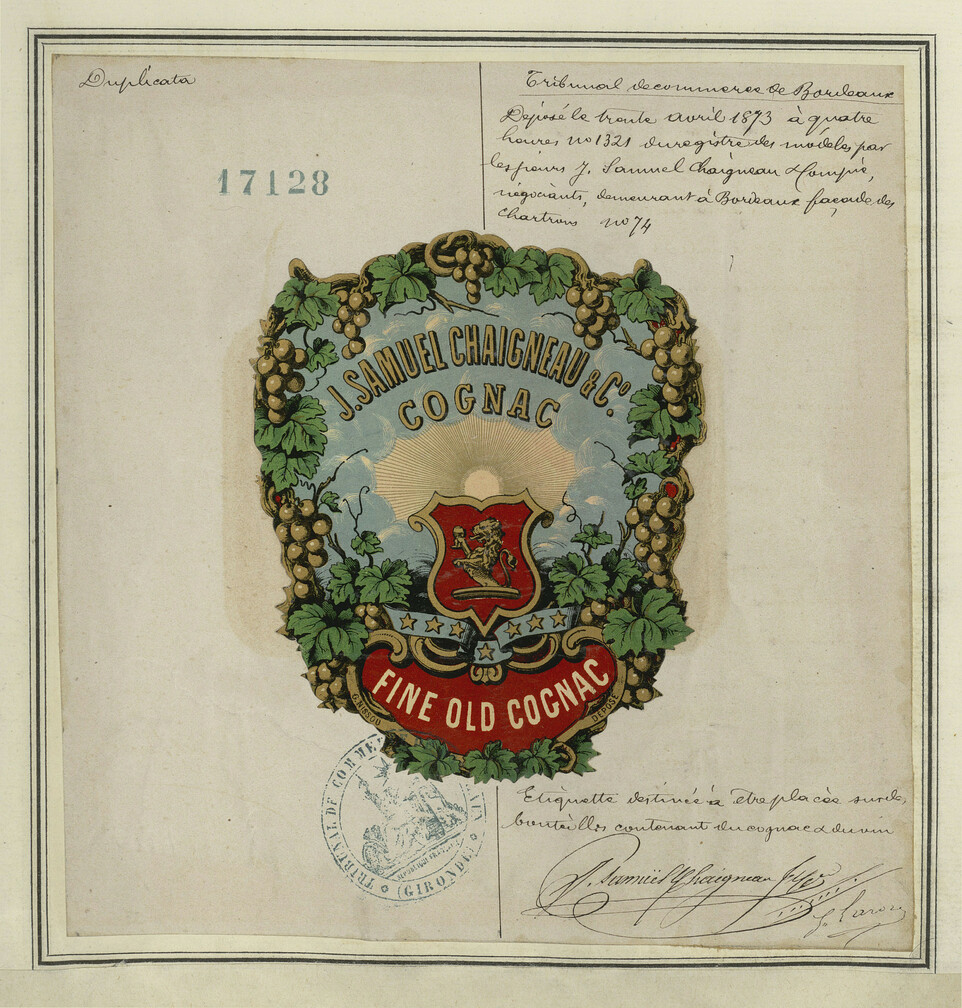 Duplicata
Tribunal de commerce de Bordeaux
Déposé le trente avril 1873 à quatre
heures no 1321 du registre des modèles par
les sieurs J. Samuel Chaigneau & Compie,
négociants, demeurant à Bordeaux façade des
Chartrons no 74
17128
J. SAMUEL CHAIGNEAU & Co.
COGNAC
FINE OLD COGNAC
G. NISSOU
DÉPOSÉ
TRIBUNAL DE COMMERCE
(GIRONDE)
Etiquette destinée à être placée sur des
bouteilles contenant du cognac & du vin
J. Samuel Chaigneau